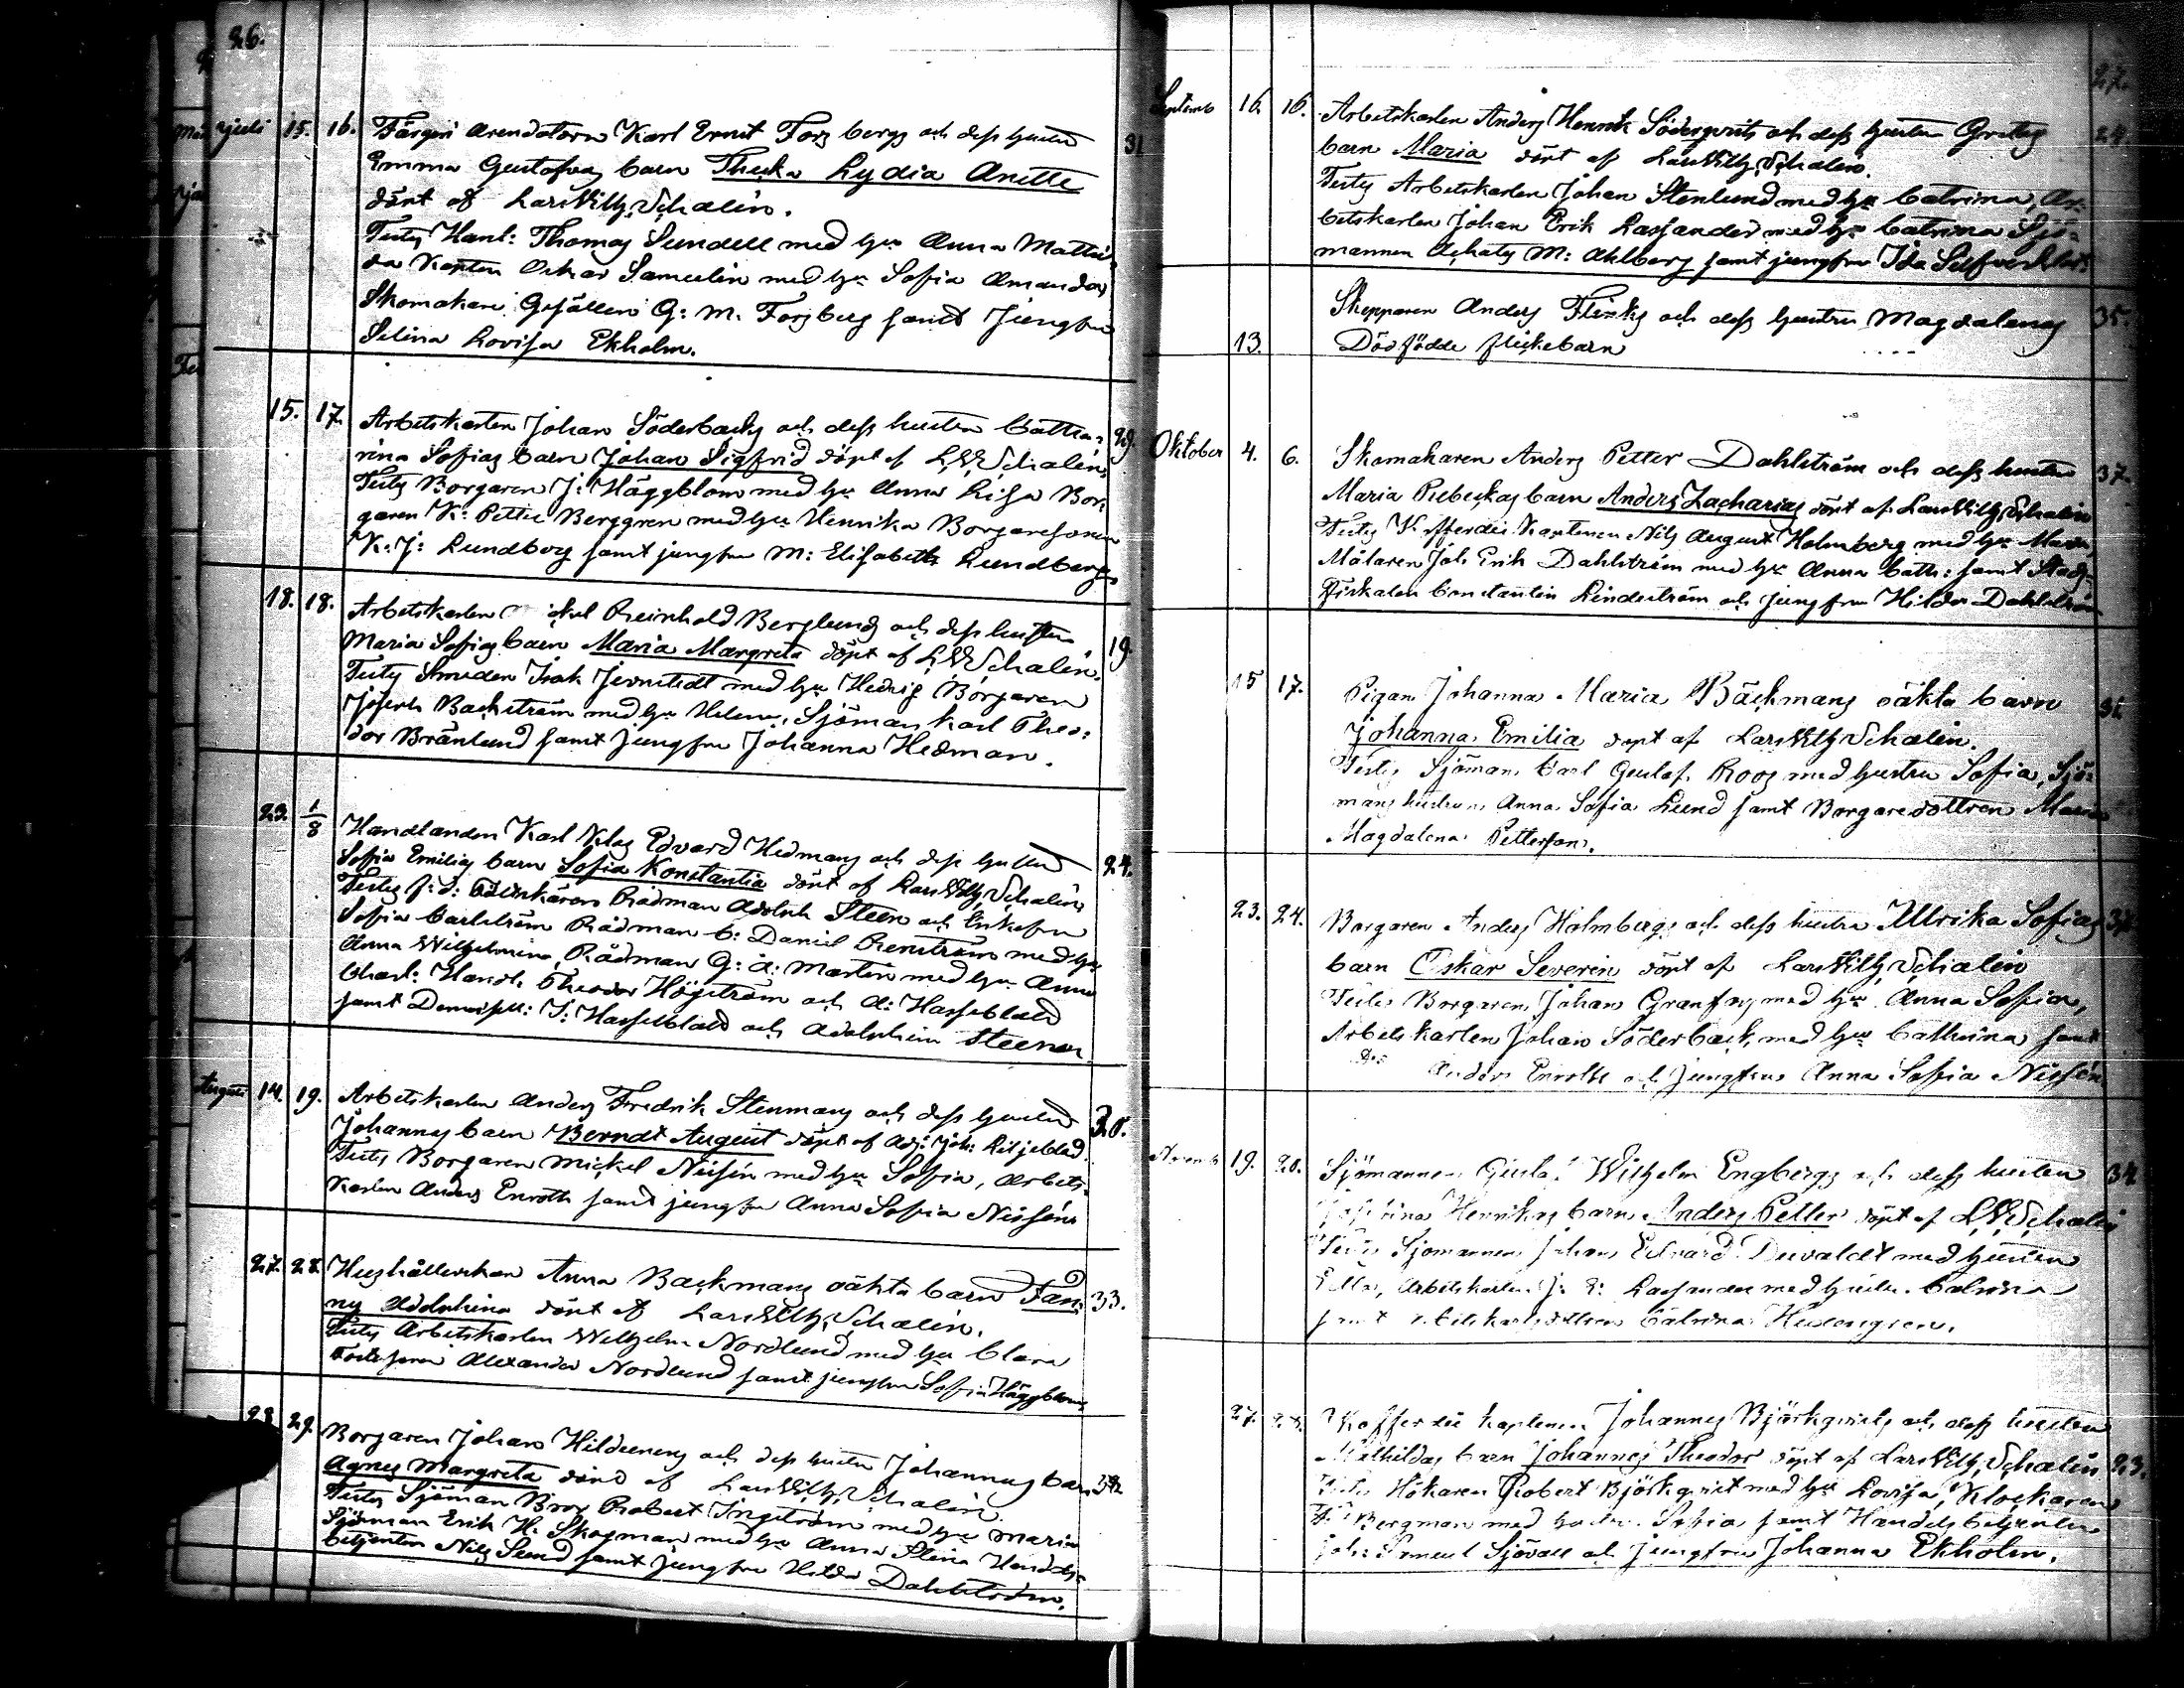 26.
Juli 15. 16. Färgeri Arendatorn Karl Ernst Forsbergs och dess hustru 31
Emma Gustafvas barn Thecka Lydia Anette
döpt af Lars Wilh. Schalin.
Testes Hanl: Thomas Sundell med hu Anna Mathil-
da Kapten Oskar Samuelin med hu Sofia Amanda
Skomakare Gesällen G: M. Forsberg samt Jungfru
Selina Lovisa Ekholm.
15. 17. Arbetskarlen Johan Söderbacks och dess hustru Catha- 29.
rina Sofias barn Johan Sigfrid döpt af L. W. Schalin,
Testes Borgaren J: Häggblom med hu Anna Lisa Bor-
garen K: Petter Berggren med hu Henrika Borgaresonen
K: J: Lundborg samt jungfru M: Elisabeth Lundberg
18. 18. Arbetskarlen Reinhold Berglunds och dess hustru
Maria Sofias barn Maria Margreta döpt af L. W. Schalin. 19.
Testes Smeden Isak Jernstedt med hu Hedvig Borgaren
Joseph Backström med hu Helena, Sjöman Karl Theo-
dor Bränlund samt Jungfru Johanna Hedman.
23. 1/8 Handlanden Karl Klas Edvard Hedmans och dess hustru
Sofia Emilias barn Sofia Konstantia döpt af Lars Wilh. Schalin 24.
Testes Rådman Adolph Steen och Enkefru
Sofia Carlström Rådman C: Daniel Renström med hu
Anna Wilhelmina, Rådman G: A: Martin med hu Anna
Charl: Handl. Theodor Högström och A: Hasselblad
samt Demoisell: I: Hasselblad och Adolphina Steen
August 14. 19. Arbetskarlen Anders Fredrik Stenmans och dess hustru 20.
Johannas barn Berndt August döpt af Adj: Joh: Liljeblad.
Testes Borgaren Mickel Nissén med hu Sofia, Arbets-
karlen Anders Enroth samt jungfru Anna Sofia Nissén
27. 28. Hushållerskan Anna Backmans oäkta barn Fan- 33.
ny Adolphina döpt af Lars Wilh. Schalin.
Testes Arbetskarlen Wilhelm Nordlund med hu Clara
Alexander Nordlund samt jungfru Sofia Häggblom
28. 29. Borgaren Johan Hildeens och dess hustru Johannas barn
Agnes Margreta döpt af Lars Wilh. Schalin.
Testes Sjöman Bror Robert Ingström med hu Maria
Sjöman Erik H. Skogman med hu Anna Stina Handels-
betjenten Nils Sund samt jungfru Hilda Dahlström.
27.
Septemb 16. 16. Arbetskarlen Anders Henrik Söderqvists och dess hustru Gretas 24
barn Maria döpt af Lars Wilh. Schalin.
Testes Arbetskarlen Johan Stenlund med hu Catrina, Ar-
betskarlen Johan Erik Lassander med hu Catrina Sjö-
mannen Achates M: Ahlberg samt jungfru Ida
Skepparen Anders Flinks och dess hustru Magdalenas 35.
13. Dödfödde flickebarn
Oktober 4. 6. Skomakaren Anders Petter Dahlström och dess hustru 37.
Maria Rebeckas barn Anders Zacharias döpt af Lars Wilh. Schalin
Testes Kofferdi Kaptenen Nils August Holmberg med hu Maria,
Målaren Joh: Erik Dahlström med hu Anna Cath: samt Stads-
Fiskalen Constantin Linderström och Jungfru Hilda Dahlström
15 17. Pigan Johanna Maria Bäckmans oäkta barn
Johanna Emilia döpt af Lars Wilh. Schalin.
Testes Sjöman Carl Gustaf Roos med hustru Sofia, Sjö-
mans hustrun Anna Sofia Lund samt Borgaredottren Maria
Magdalena Petterson.
23. 24. Borgaren Anders Holmbergs och dess hustru Ulrika Sofias
barn Oskar Severin döpt af Lars Wilh. Schalin
Testes Borgaren Johan Granfors med hu Anna Sofia,
Arbetskarlen Johan Söderback, med hu Cathrina samt
Anders Enroth och Jungfru Anna Sofia Nissén
Novemb 19. 20. Sjömannen Gustaf Wilhelm Engbergs och dess hustru 34.
Henrikas barn Anders Petter döpt af L. W. Schalin
Testes Sjömannen Johan Edvard Dewaldt med hustru
Arbetskarlen J: E: Lassander med hustru Catrina
samt Arbetskarlsdottren Catrina
27. 28. Kofferdie kaptenen Johannes Björkqvists och dess hustru
Mathildas barn Johannes Theodor döpt af Lars Wilh. Schalin 23.
Testes Hökaren Robert Björkqvist med hu Lovisa, Klockaren
Bergman med hustru Sofia samt Handels betjenten
Joh: Samuel Sjövall och Jungfru Johanna Ekholm.